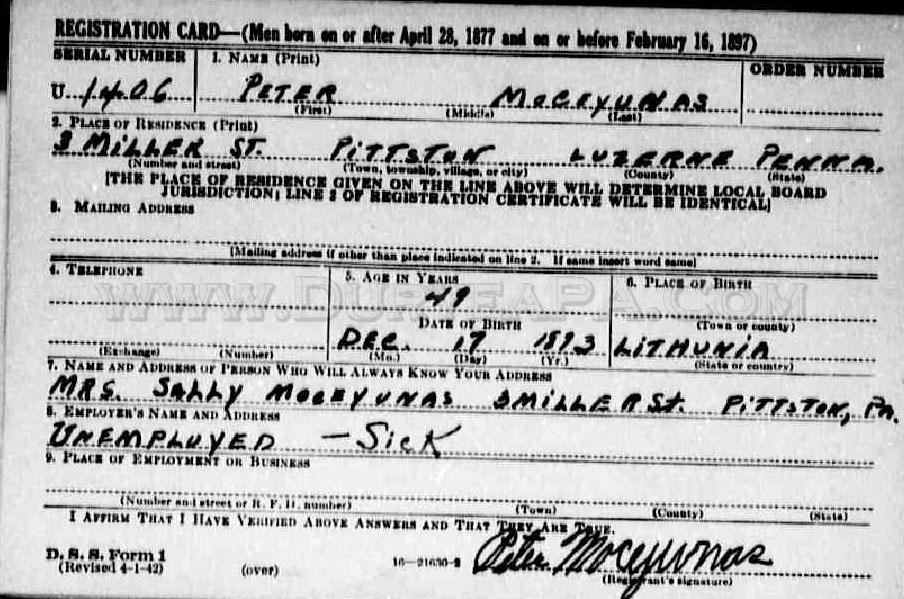 REGISTRATION CARD—(Men born on or after April 28, 1877 and on or before February 16, 1897)
SERIAL NUMBER 1. NAME (Print) ORDER NUMBER
U 1406 PETER MOCEYUNAS
(First) (Middle) (Last)
2. PLACE OF RESIDENCE (Print)
3 MILLER ST. PITTSTON LUZERNE PENNA.
(Number and street) (Town, township, village, or city) (County) (State)
[THE PLACE OF RESIDENCE GIVEN ON THE LINE ABOVE WILL DETERMINE LOCAL BOARD
JURISDICTION; LINE 2 OF REGISTRATION CERTIFICATE WILL BE IDENTICAL]
3. MAILING ADDRESS
[Mailing address if other than place indicated on line 2. If same insert word same]
4. TELEPHONE 5. AGE IN YEARS 6. PLACE OF BIRTH
49
WWW.DURYEAPA.COM
DATE OF BIRTH (Town or county)
DEC. 17 1893 LITHUNIA
(Exchange) (Number) (Mo.) (Day) (Yr.) (State or country)
7. NAME AND ADDRESS OF PERSON WHO WILL ALWAYS KNOW YOUR ADDRESS
MRS. SALLY MOCEYUNAS 3 MILLER St. PITTSTON, PA.
8. EMPLOYER'S NAME AND ADDRESS
UNEMPLOYED — SICK
9. PLACE OF EMPLOYMENT OR BUSINESS
(Number and street or R. F. D. number) (Town) (County) (State)
I AFFIRM THAT I HAVE VERIFIED ABOVE ANSWERS AND THAT THEY ARE TRUE.
D. S. S. Form 1
(Revised 4-1-42) (over) 16—21630-2 Peter Moceyunas
(Registrant's signature)